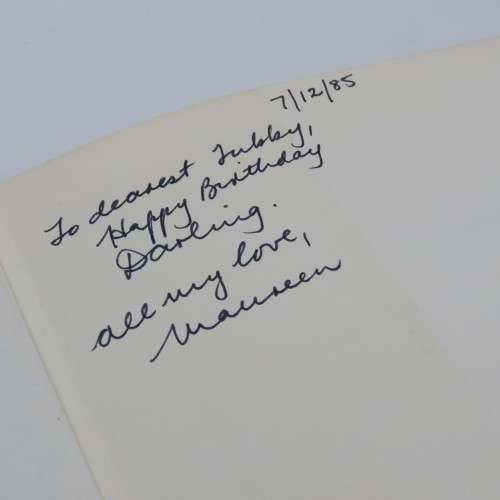 7/12/85
To dearest Tubby,
Happy Birthday
Darling.
all my love,
Maureen